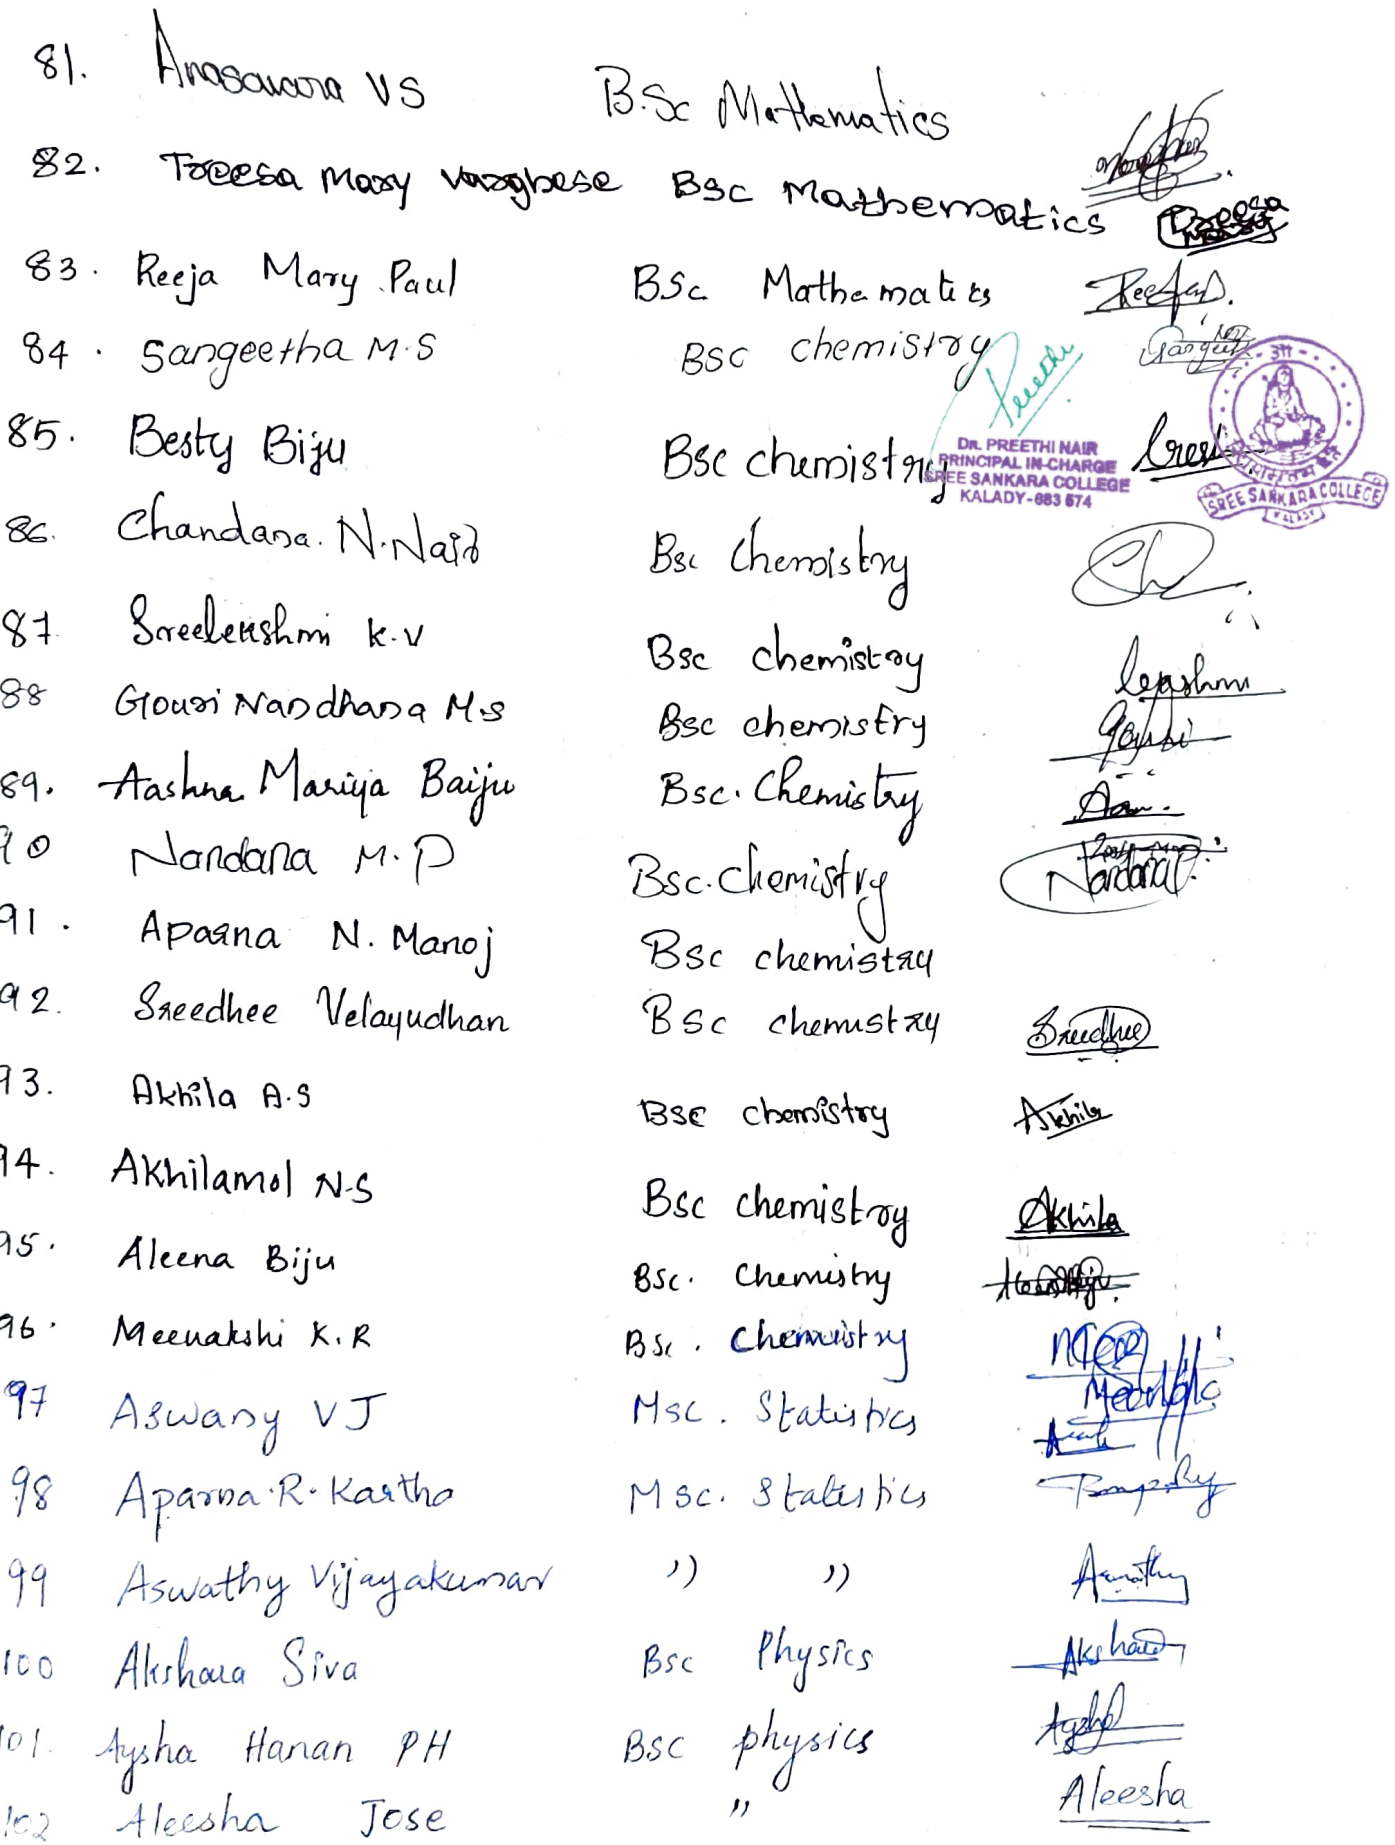 81. Anaswara VS B.Sc Mathematics
82. Treesa Mary Varghese BSc Mathematics Treesa
83. Reeja Mary Paul BSc Mathematics
84. Sangeetha M.S BSC chemistry
Preethi
DR. PREETHI NAIR
PRINCIPAL IN-CHARGE
SREE SANKARA COLLEGE
KALADY-683 574
SREE SANKARA COLLEGE
KALADY
85. Besty Biju Bsc chemistry
86. Chandana. N. Nair Bsc Chemistry
87 Sreelekshmi K.V Bsc chemistry
88 Gouri Nandhana M.S Bsc chemistry
89. Aashna Mariya Baiju Bsc. Chemistry
90 Nandana M.P Bsc. Chemistry Nandana
91. Aparna N. Manoj BSc chemistry
92. Sreedhee Velayudhan BSc chemistry Sreedhee
93. Akhila A.S BSC chemistry Akhila
94. Akhilamol N.S BSC chemistry Akhila
95. Aleena Biju BSc. Chemistry
96. Meenakshi K.R BSc. Chemistry
97 Aswany V J Msc. Statistics
98 Aparna.R.Kartha Msc. Statistics
99 Aswathy Vijayakumar ,, ,, Aswathy
100 Akshara Siva Bsc Physics Akshara
101. Aysha Hanan PH BSC physics Aysha
102 Aleesha Jose ,, Aleesha